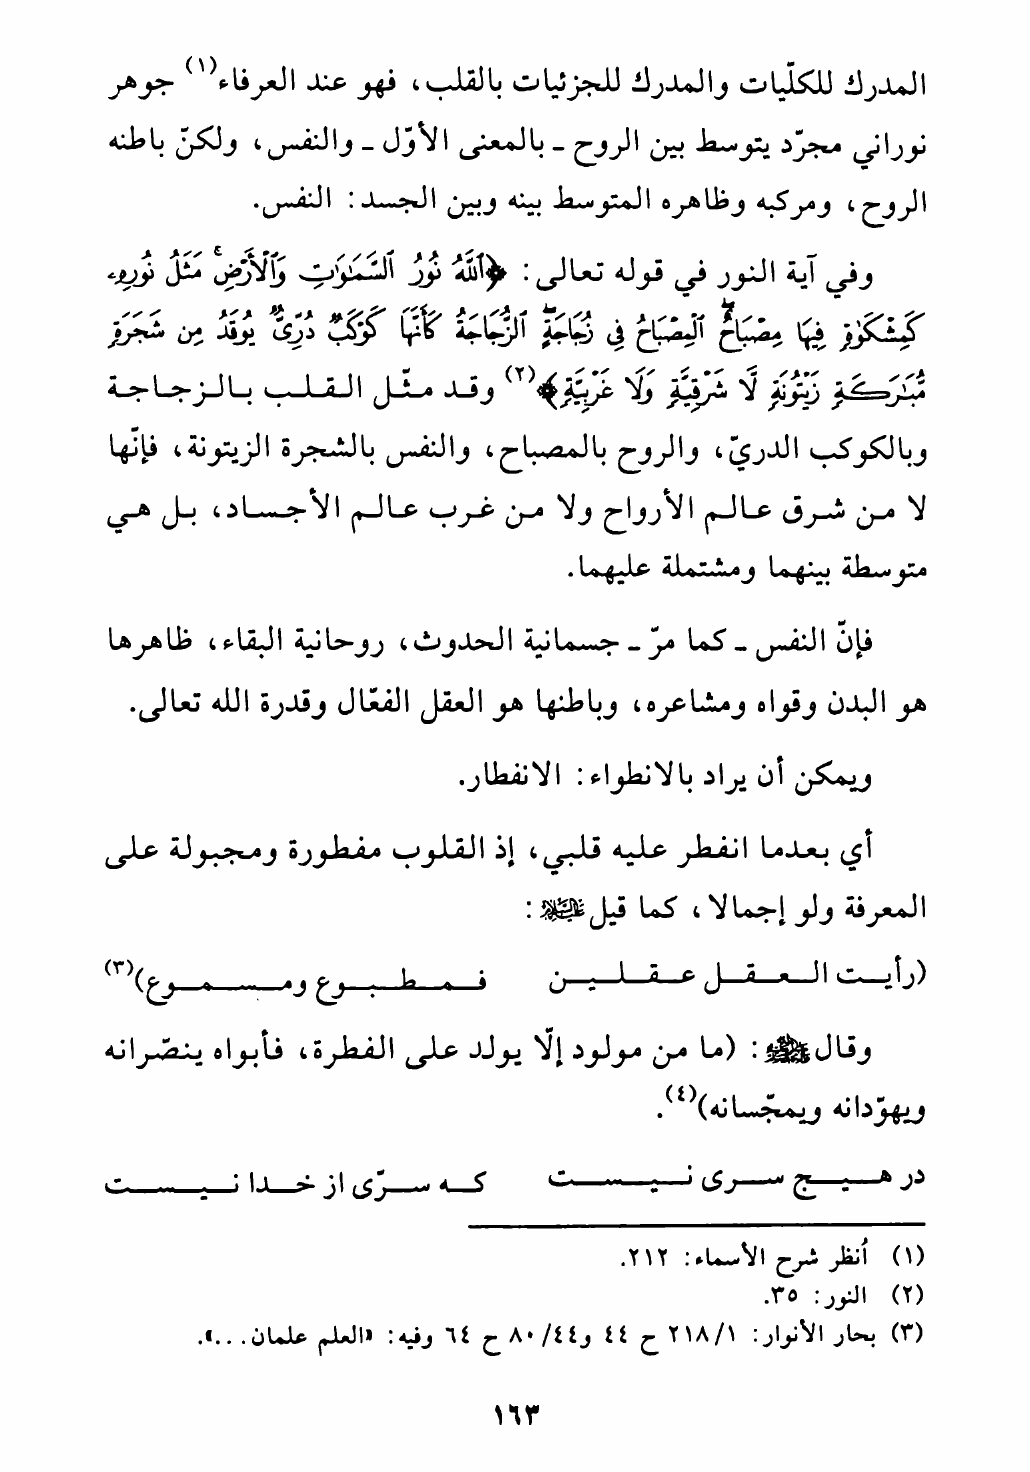 المدرك للكلّيات والمدرك للجزئيات بالقلب، فهو عند العرفاء(١) جوهر
نوراني مجرّد يتوسط بين الروح ـ بالمعنى الأوّل ـ والنفس، ولكنّ باطنه
الروح، ومركبه وظاهره المتوسط بينه وبين الجسد: النفس.
وفي آية النور في قوله تعالى: ﴿ٱللَّهُ نُورُ ٱلسَّمَٰوَٰتِ وَٱلْأَرْضِۚ مَثَلُ نُورِهِۦ
كَمِشْكَوٰةٍ فِيهَا مِصْبَاحٌۖ ٱلْمِصْبَاحُ فِي زُجَاجَةٍۖ ٱلزُّجَاجَةُ كَأَنَّهَا كَوْكَبٌ دُرِّيٌّ يُوقَدُ مِن شَجَرَةٍ
مُّبَٰرَكَةٍ زَيْتُونَةٍ لَّا شَرْقِيَّةٍ وَلَا غَرْبِيَّةٍ﴾(٢) وقد مثّل القلب بالزجاجة
وبالكوكب الدريّ، والروح بالمصباح، والنفس بالشجرة الزيتونة، فإنّها
لا من شرق عالم الأرواح ولا من غرب عالم الأجساد، بل هي
متوسطة بينهما ومشتملة عليهما.
فإنّ النفس ـ كما مرّ ـ جسمانية الحدوث، روحانية البقاء، ظاهرها
هو البدن وقواه ومشاعره، وباطنها هو العقل الفعّال وقدرة الله تعالى.
ويمكن أن يراد بالانطواء: الانفطار.
أي بعدما انفطر عليه قلبي، إذ القلوب مفطورة ومجبولة على
المعرفة ولو إجمالا، كما قيل عليه السلام:
(رأيت العقل عقلين فمطبوع ومسموع)(٣)
وقال ﷺ: (ما من مولود إلّا يولد على الفطرة، فأبواه ينصّرانه
ويهوّدانه ويمجّسانه)(٤).
در هيچ سرى نيست كه سرّى از خدا نيست
(١) اُنظر شرح الأسماء: ٢١٢.
(٢) النور: ٣٥.
(٣) بحار الأنوار: ٢١٨/١ ح ٤٤ و٨٠/٤٤ ح ٦٤ وفيه: «العلم علمان...».
١٦٣